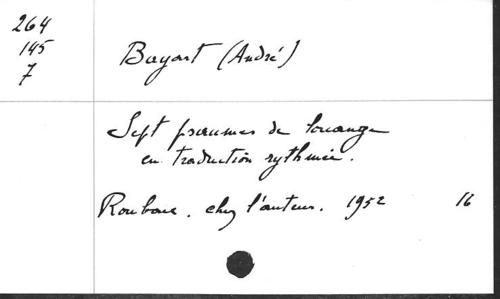 264
145
7
Bayart (André)
Sept psaumes de louange
en traduction rythmée.
Roubaix. chez l'auteur. 1952 16